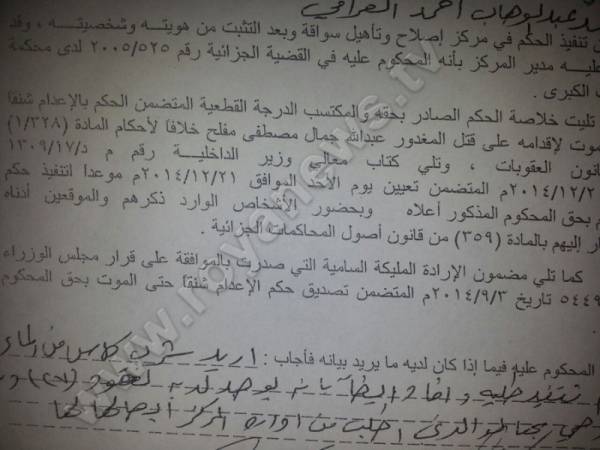 عبدالوهاب احمد العراقي
تنفيذ الحكم في مركز إصلاح وتأهيل سواقة وبعد التثبت من هويته وشخصيته ، وقد
عليه مدير المركز بأنه المحكوم عليه في القضية الجزائية رقم ٢٠٠٥/٥٢٥ لدى محكمة
الكبرى .
تليت خلاصة الحكم الصادر بحقه والمكتسب الدرجة القطعية المتضمن الحكم بالإعدام شنقاً
لإقدامه على قتل المغدور عبدالله جمال مصطفى مفلح خلافاً لأحكام المادة (١/٣٢٨)
العقوبات ، وتلي كتاب معالي وزير الداخلية رقم م د/١٣٠٩/١٧
٢٠١٤/١٢/٢م المتضمن تعيين يوم الأحد الموافق ٢٠١٤/١٢/٢١م موعداً لتنفيذ حكم
بحق المحكوم المذكور أعلاه وبحضور الأشخاص الوارد ذكرهم والموقعين أدناه
إليهم بالمادة (٣٥٩) من قانون أصول المحاكمات الجزائية .
كما تلي مضمون الإرادة الملكية السامية التي صدرت بالموافقة على قرار مجلس الوزراء
٥٤٤٩ تاريخ ٢٠١٤/٩/٣م المتضمن تصديق حكم الإعدام شنقاً حتى الموت بحق المحكوم
المحكوم عليه فيما إذا كان لديه ما يريد بيانه فأجاب : اريد شرب كاس من الماء
بانه يوجد لديه
اطلب من ادارة المركز ايصالها لها
www.royanews.tv